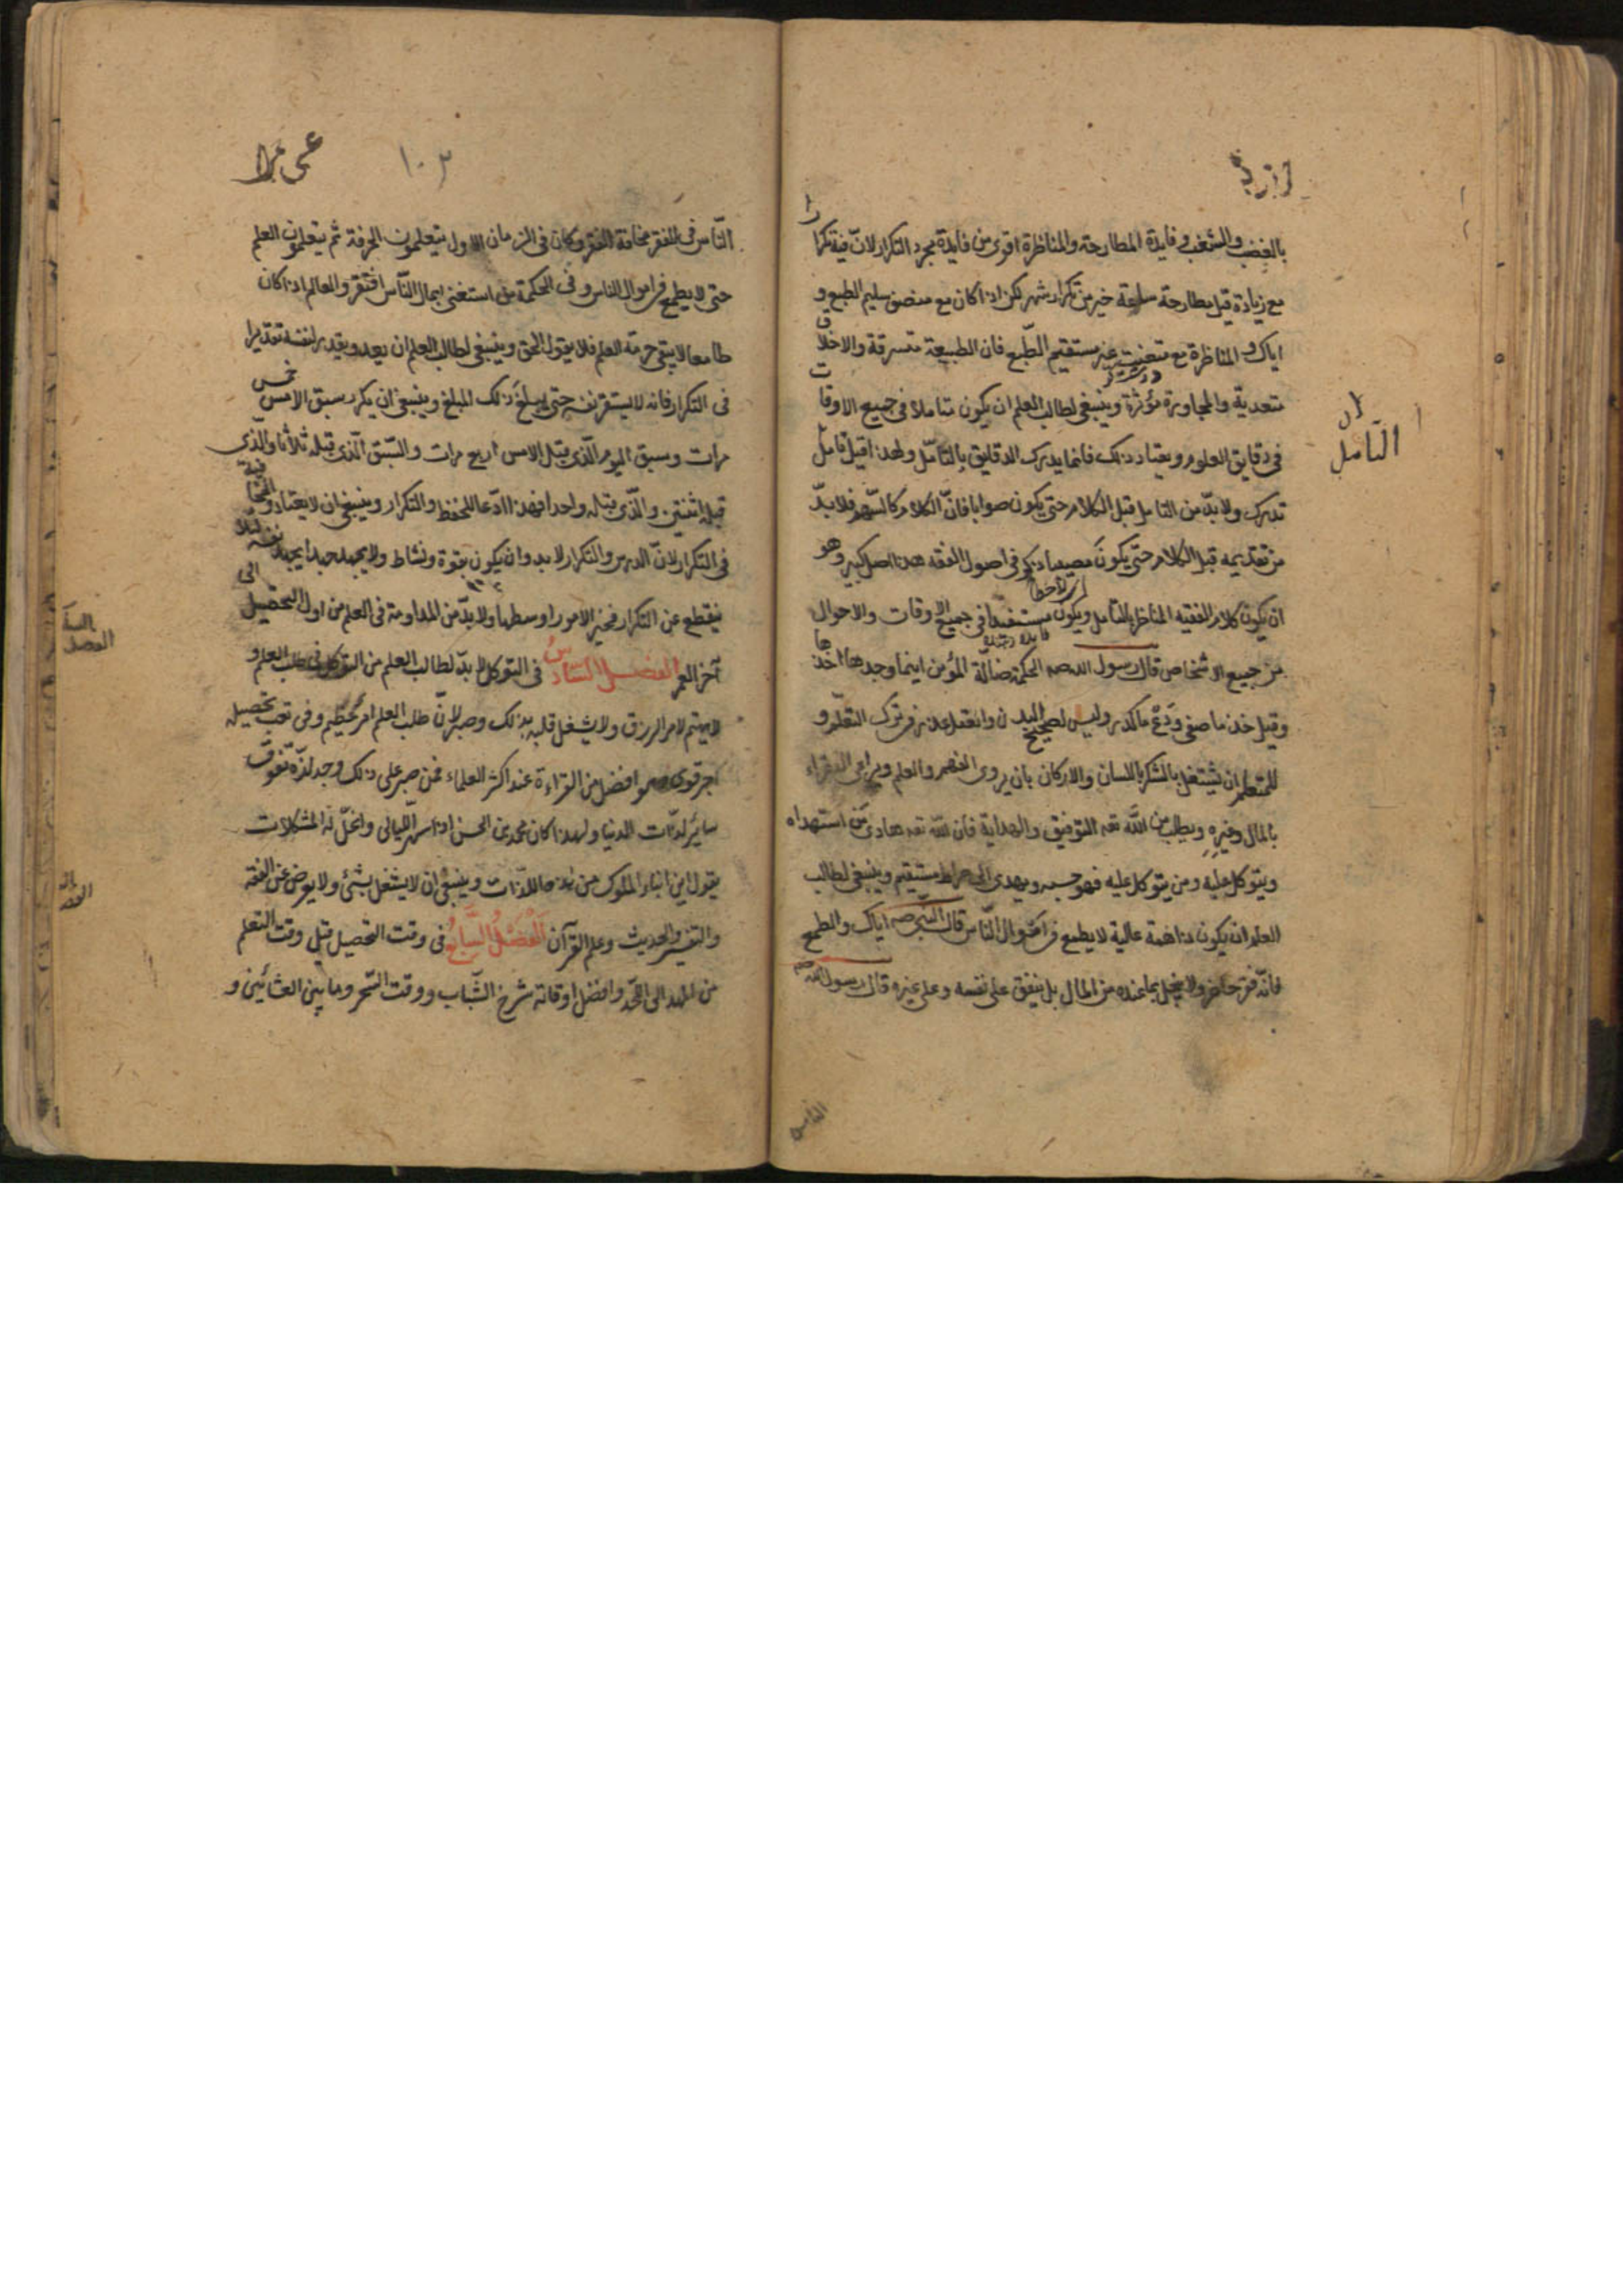 بالغضب والشغب وفايدة المطارحة والمناظرة اقوى من فايدة مجرد التكرار لانّ فيه تكرارا
مع زيادة قيل مطارحة ساعة خير من تكرار شهر لكن اذا كان مع منصف سليم الطبع و
اياك والمناظرة مع متعنت غير مستقيم الطّبع فان الطبيعة متسرقة والاخلاق
متعدية والمجاورة مؤثرة وينبغى لطالب العلم ان يكون متاملا فى جميع الاوقات
فى دقايق العلوم ويعتاد ذلك فانما يدرك الدقايق بالتامّل ولهذا قيل تامل
تدرك ولا بدّ من التامل قبل الكلام حتى يكون صوابا فانّ الكلام كالسّهم فلا بدّ
من تقديمه قبل الكلام حتى يكون مصيبا ذكر فى اصول الفقه هذا اصل كبير وهو
ان يكون كلام الفقيه المناظر بالتامل ويكون مستفيدا فى جميع الاوقات والاحوال
من جميع الاشخاص قال رسول الله صه الحكمة ضالّة المؤمن اينما وجدها اخذها
وقيل خذ ما صفى ودع ما كدر وليس لصحيح البدن والعقل عذر فى ترك التعلّم و
للمتعلم ان يشتغل بالشكر باللسان والاركان بان يروى الفهم والعلم ويراعى الفقراء
بالمال وغيره ويطلب من الله تعه التوفيق والهداية فان الله تعه هادى من استهداه
ويتوكل عليه ومن يتوكل عليه فهو حسبه ويهدى الى صراط مستقيم وينبغى لطالب
العلم ان يكون ذا همة عالية لا يطمع فى اموال النّاس قال النّبى صه اياك والطمع
فانّه فقر حاضر ولا يبخل بما عنده من المال بل ينفق على نفسه وعلى غيره قال رسول الله صه
الناس
التامل
١٠٣
النّاس فى الفقر مخافة الفقر وكان فى الزمان الاول يتعلمون الحرفة ثم يتعلمون العلم
حتى لا يطمع فى اموال الناس وفى الحكمة من استغنى بمال النّاس افتقر والعالم اذا كان
طامعا لا يبقى حرمة العلم فلا يقول الحق وينبغى لطالب العلم ان يعد ويقدر لنفسه تقديرا
فى التكرار فانه لا يستقر نفسه حتى يبلغ ذلك المبلغ وينبغى ان يكرر سبق الامس خمس
مرات وسبق اليوم الّذى قبل الامس اربع مرات والسّبق الّذى قبله ثلاثا والّذى
قبله اثنتين والّذى قبله واحدا فهذا ادعا للحفظ والتكرار وينبغى ان لا يعتاد المخافتة
فى التكرار لانّ الدرس والتكرار لا بد وان يكون بقوة ونشاط ولا يجهد جهدا يجهد نفسه لئلا
ينقطع عن التكرار فخير الامور اوسطها ولا بدّ من المداومة فى العلم من اول التحصيل الى
آخر العمر الفصل السّادس فى التوكل لا بدّ لطالب العلم من التوكل فى طلب العلم و
لا يهتم لامر الرزق ولا يشغل قلبه بذلك وصبر لانّ طلب العلم امر عظيم وفى تعب تحصيله
اجر قوى وهو افضل من القراءة عند اكثر العلماء فمن صبر على ذلك وجد لذّة تفوق
سائر لذّات الدنيا ولهذا كان محمد بن الحسن اذا سهر اللّيالى وانحلّ له المشكلات
يقول اين ابناء الملوك من هذه اللذّات وينبغى ان لا يشغل بشئ ولا يعرض عن الفقه
والتفسير والحديث وعلم القرآن الفصل السّابع فى وقت التحصيل قيل وقت التعلم
من المهد الى اللّحد وافضل اوقاته شرخ الشّباب ووقت السّحر وما بين العشائين و